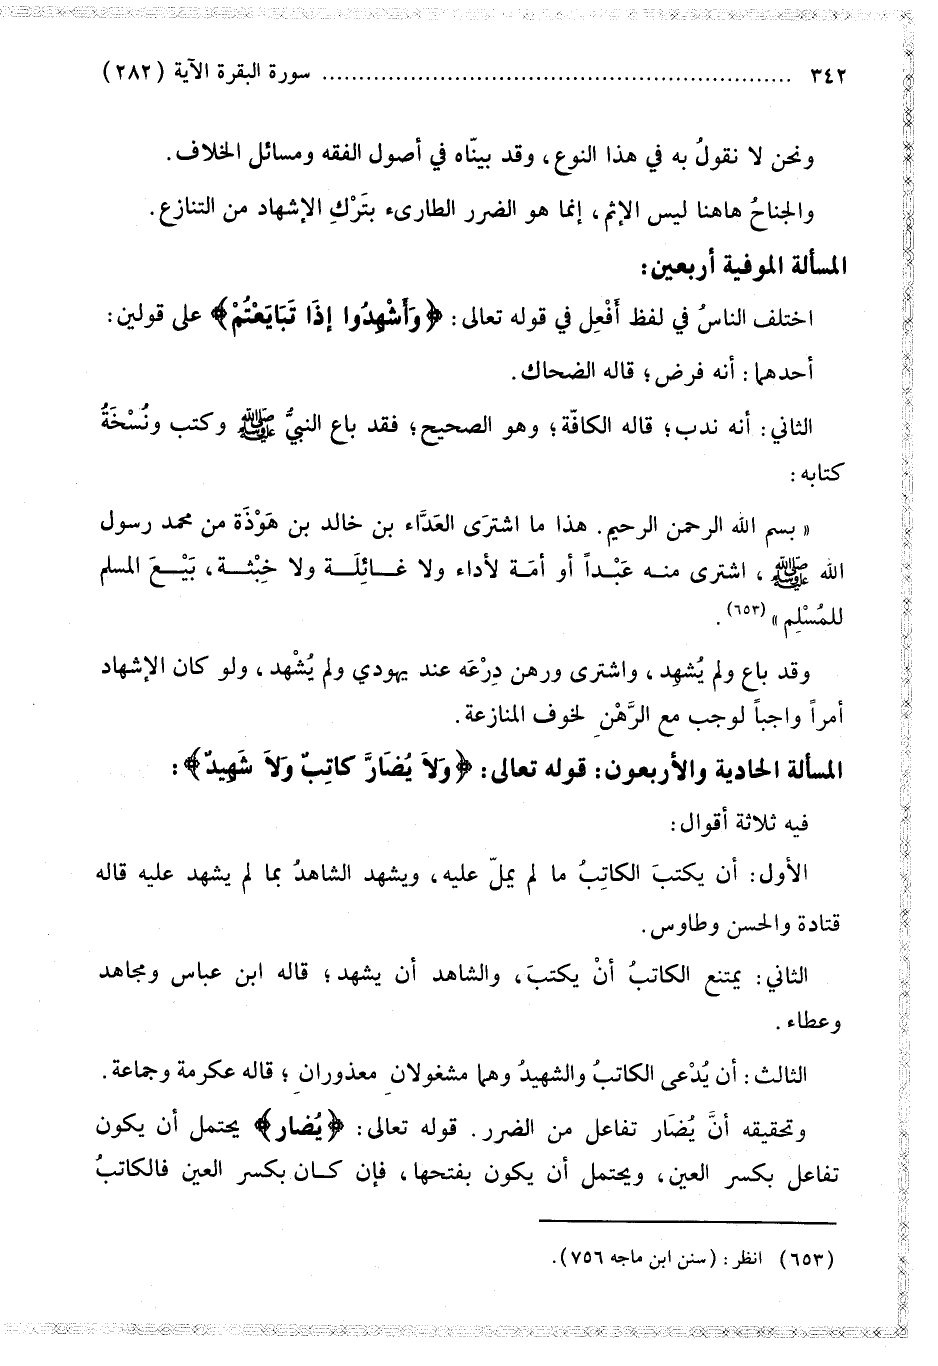 ٣٤٢ .................................................................. سورة البقرة الآية (٢٨٢)
ونحن لا نقولُ به في هذا النوع، وقد بينّاه في أصول الفقه ومسائل الخلاف.
والجناحُ هاهنا ليس الإثم، إنما هو الضرر الطارىء بتَرْكِ الإشهاد من التنازع.
المسألة الموفية أربعين:
اختلف الناسُ في لفظ أَفْعِل في قوله تعالى: ﴿وَأَشْهِدُوا إِذَا تَبَايَعْتُمْ﴾ على قولين:
أحدهما: أنه فرض؛ قاله الضحاك.
الثاني: أنه ندب؛ قاله الكافّة؛ وهو الصحيح؛ فقد باع النبيُّ ﷺ وكتب ونُسْخَةُ
كتابه:
«بسم الله الرحمن الرحيم. هذا ما اشترَى العَدَّاء بن خالد بن هَوْذَة من محمد رسول
الله ﷺ، اشترى منه عَبْداً أو أمَة لأداء ولا غائِلَة ولا خِبْثة، بَيْعَ المسلم
للمُسْلِم»(٦٥٣).
وقد باع ولم يُشهِد، واشترى ورهن دِرْعَه عند يهودي ولم يُشْهد، ولو كان الإشهاد
أمراً واجباً لوجب مع الرَّهْنِ لخوف المنازعة.
المسألة الحادية والأربعون: قوله تعالى: ﴿وَلاَ يُضَارَّ كاتِبٌ وَلاَ شَهِيدٌ﴾:
فيه ثلاثة أقوال:
الأول: أن يكتبَ الكاتِبُ ما لم يملّ عليه، ويشهد الشاهدُ بما لم يشهد عليه قاله
قتادة والحسن وطاوس.
الثاني: يمتنع الكاتبُ أنْ يكتبَ، والشاهد أن يشهد؛ قاله ابن عباس ومجاهد
وعطاء.
الثالث: أن يُدْعى الكاتبُ والشهيدُ وهما مشغولانِ معذورانِ؛ قاله عكرمة وجماعة.
وتحقيقه أنَّ يُضَار تفاعل من الضرر. قوله تعالى: ﴿يُضار﴾ يحتمل أن يكون
تفاعل بكسر العين، ويحتمل أن يكون بفتحها، فإن كان بكسر العين فالكاتبُ
(٦٥٣) انظر: (سنن ابن ماجه ٧٥٦).